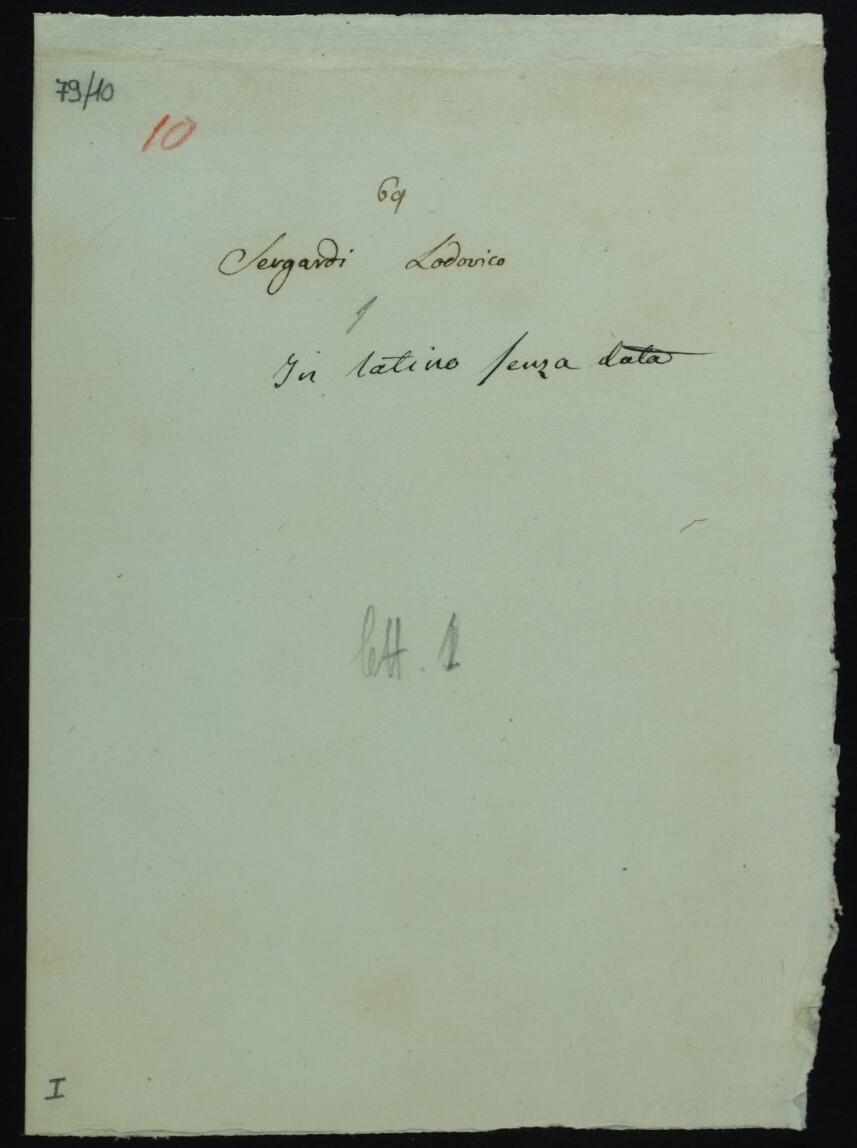 79/10
10
69
Sergardi Lodovico
1
In latino senza data
lett. 1
I